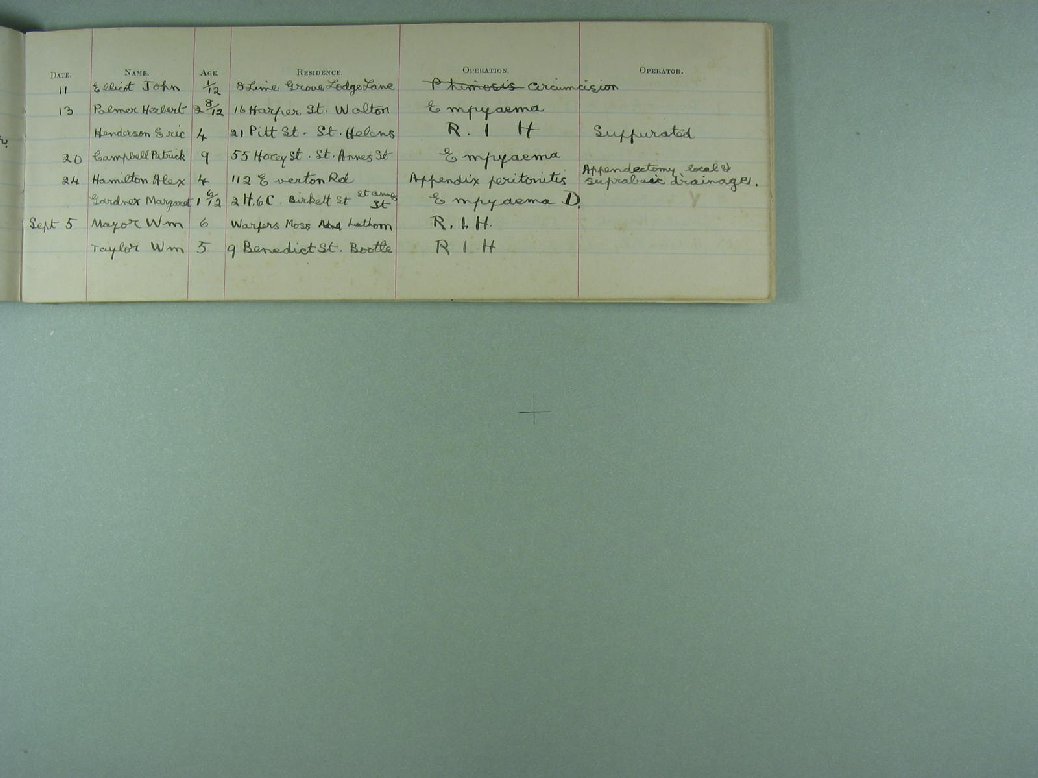 DATE. NAME. AGE RESIDENCE OPERATION. OPERATOR.
11 Elliot John 1/12 8 Lime Grove Lodge Lane Phimosis circumcision
13 Palmer Herbert 2 8/12 16 Harper St. Walton Empyaema
Henderson Eric 4 21 Pitt St. St. Helens R. I H Suppurated
20 Campbell Patrick 9 St. Annes St Empyaema
24 Hamilton Alex 4 112 Everton Rd Appendix peritonitis Appendectomy local &
suprapubic drainage.
Gardner Margaret 1 6/12 2 H. 6 C Birkett St St Annes St Empyaema D.
Sept 5 Mayor Wm 6 Moss Lathom R. I. H.
Taylor Wm 5 9 Benedict St. Bootle R I H